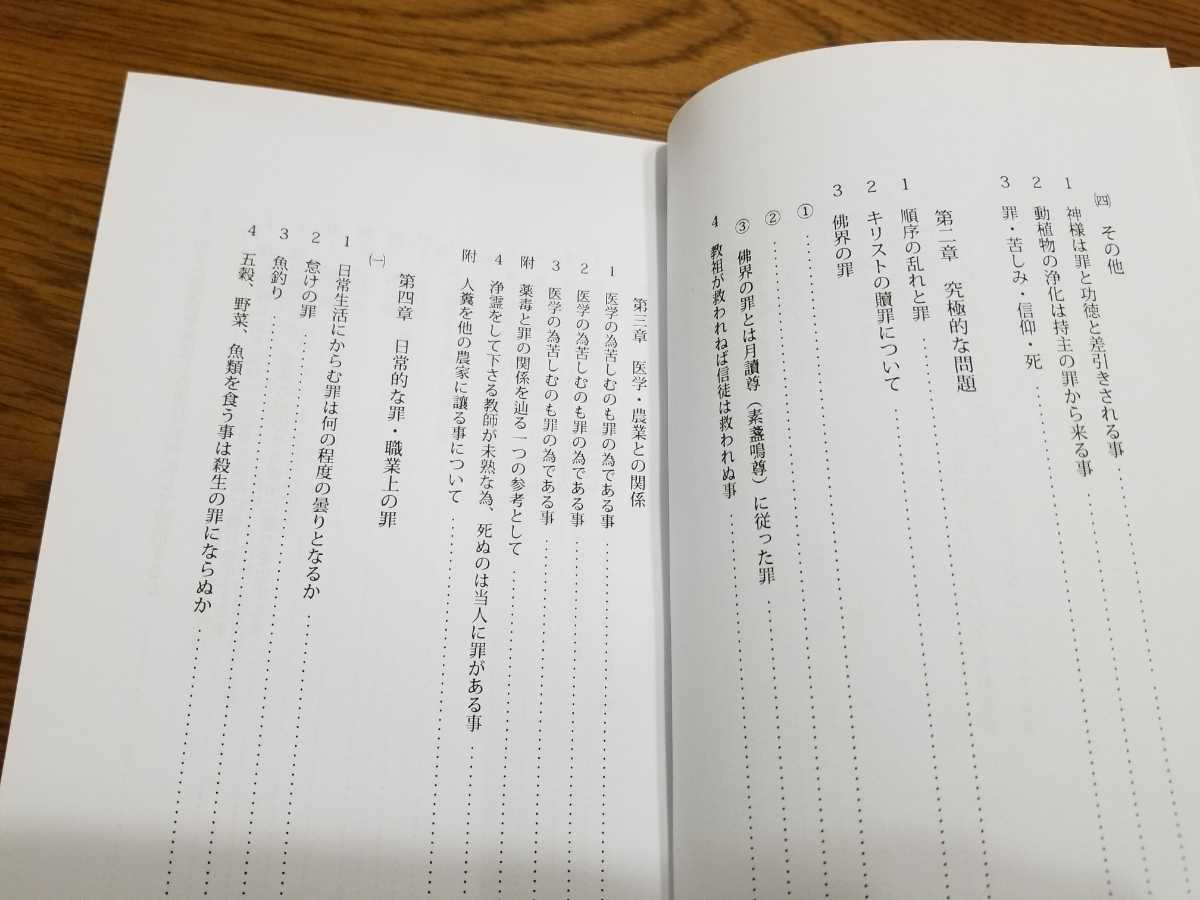 ㈣ その他
1 神様は罪と功徳と差引きされる事
2 動植物の浄化は持主の罪から来る事
3 罪・苦しみ・信仰・死
第二章 究極的な問題
1 順序の乱れと罪
2 キリストの贖罪について
3 佛界の罪
①
②
③ 佛界の罪とは月讀尊（素盞嗚尊）に従った罪
4 教祖が救われねば信徒は救われぬ事
第三章 医学・農業との関係
1 医学の為苦しむのも罪の為である事
2 医学の為苦しむのも罪の為である事
3 医学の為苦しむのも罪の為である事
附 薬毒と罪の関係を辿る一つの参考として
4 浄霊をして下さる教師が未熟な為、死ぬのは当人に罪がある事
附 人糞を他の農家に譲る事について
第四章 日常的な罪・職業上の罪
㈠
1 日常生活にからむ罪は何の程度の曇りとなるか
2 怠けの罪
3 魚釣り
4 五穀、野菜、魚類を食う事は殺生の罪にならぬか